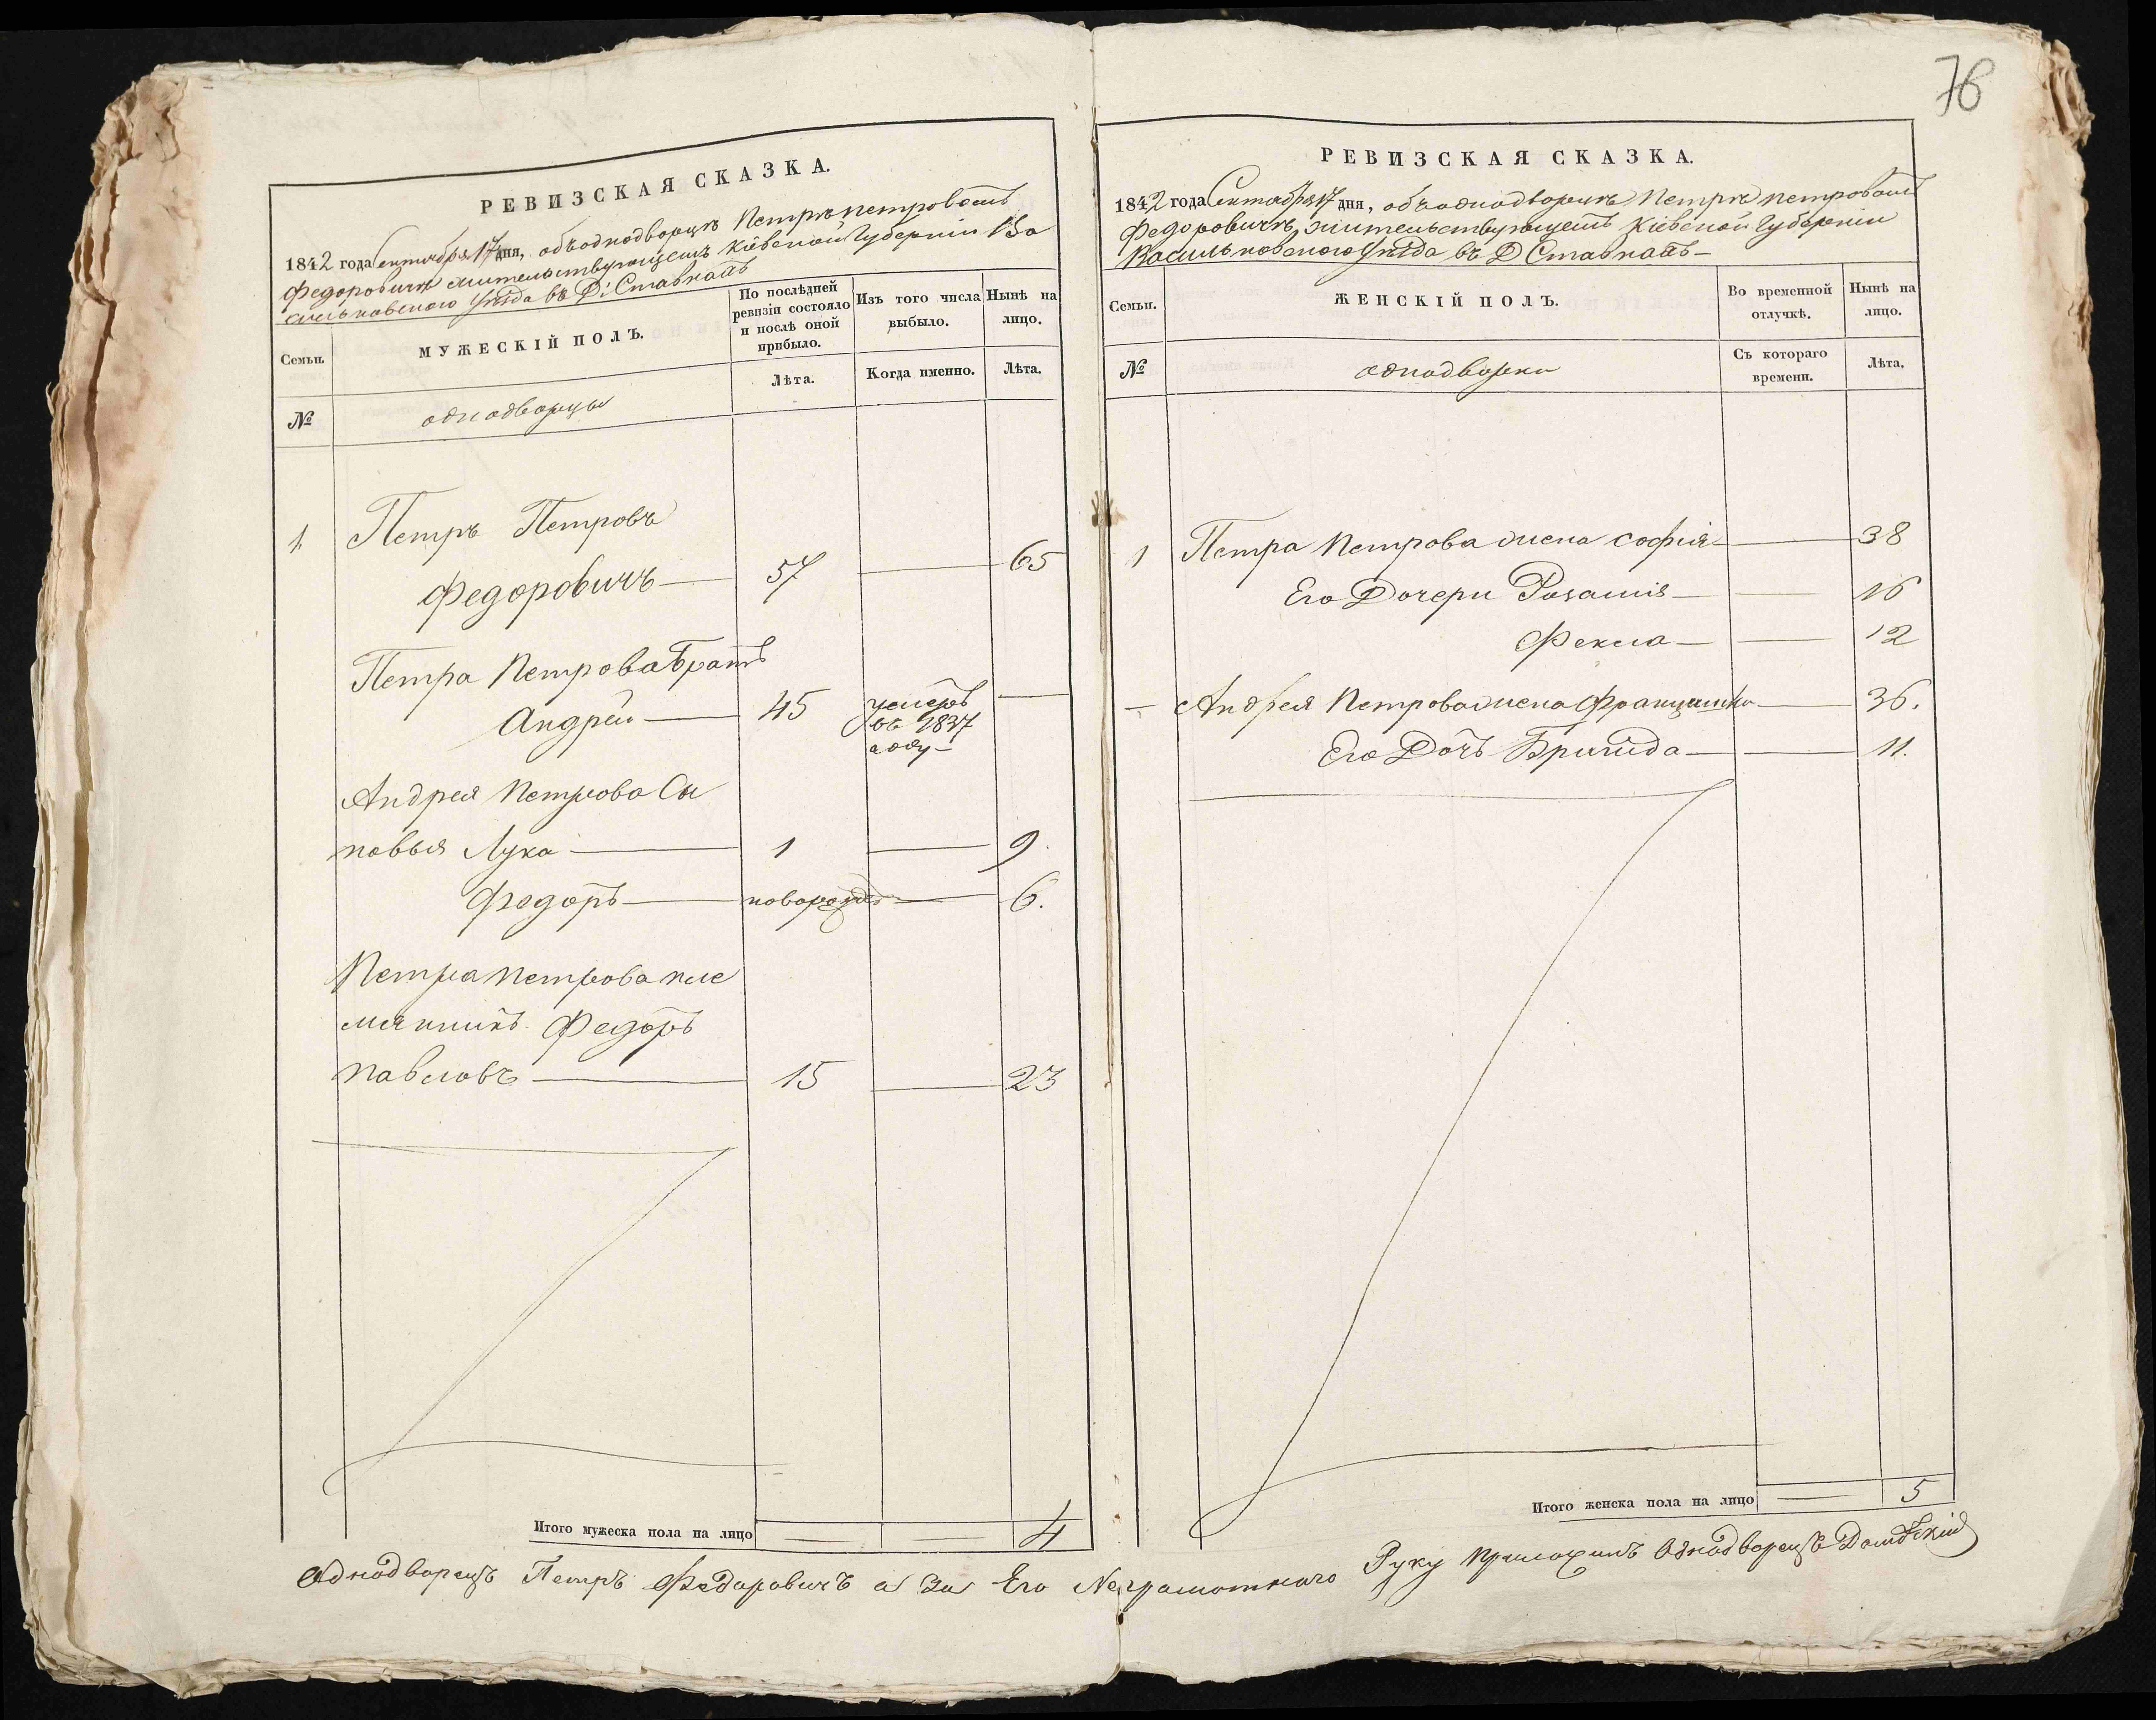 78
РЕВИЗСКАЯ СКАЗКА.
1842 года Сентября 17 дня, объ однодворцѣ Петрѣ Петровомъ
Федоровичѣ жительствующемъ Кіевской Губерніи Ва
сильковского уѣзда въ Д: Ставкахъ
Семьи.
МУЖЕСКІЙ ПОЛЪ.
По послѣдней ревизіи состояло и послѣ оной прибыло.
Изъ того числа выбыло.
Нынѣ на лицо.
Лѣта.
Когда именно.
Лѣта.
№
однодворцы
1
Петръ Петровъ
Федоровичъ — 57 — 65
Петра Петрова Братъ
Андрей — 45 умеръ въ 1837 году — —
Андрея Петрова Сы
новья Лука — 1 — 9.
Федоръ — новорожд: — 6.
Петра Петрова пле
мянникъ Федоръ
Павловъ — 15 — 23
Итого мужеска пола на лицо — — 4
РЕВИЗСКАЯ СКАЗКА.
1842 года Сентября 17 дня, объ однодворцѣ Петрѣ Петровомъ
Федоровичѣ, жительствующемъ Кіевской Губерніи
Васильковского уѣзда въ Д Ставкахъ —
Семьи.
ЖЕНСКІЙ ПОЛЪ.
Во временной отлучкѣ.
Нынѣ на лицо.
№
однодворки
Съ котораго времени.
Лѣта.
1 Петра Петрова жена софія — 38
Его Дочери Розалія — — 16
Фекла — — 12
— Андрея Петрова жена Францишка — 36.
Его Дочь Бригида — — 11.
Итого женска пола на лицо — 5
Однодворецъ Петръ Федоровичъ а за Его Неграмотного Руку Приложилъ Однодворецъ